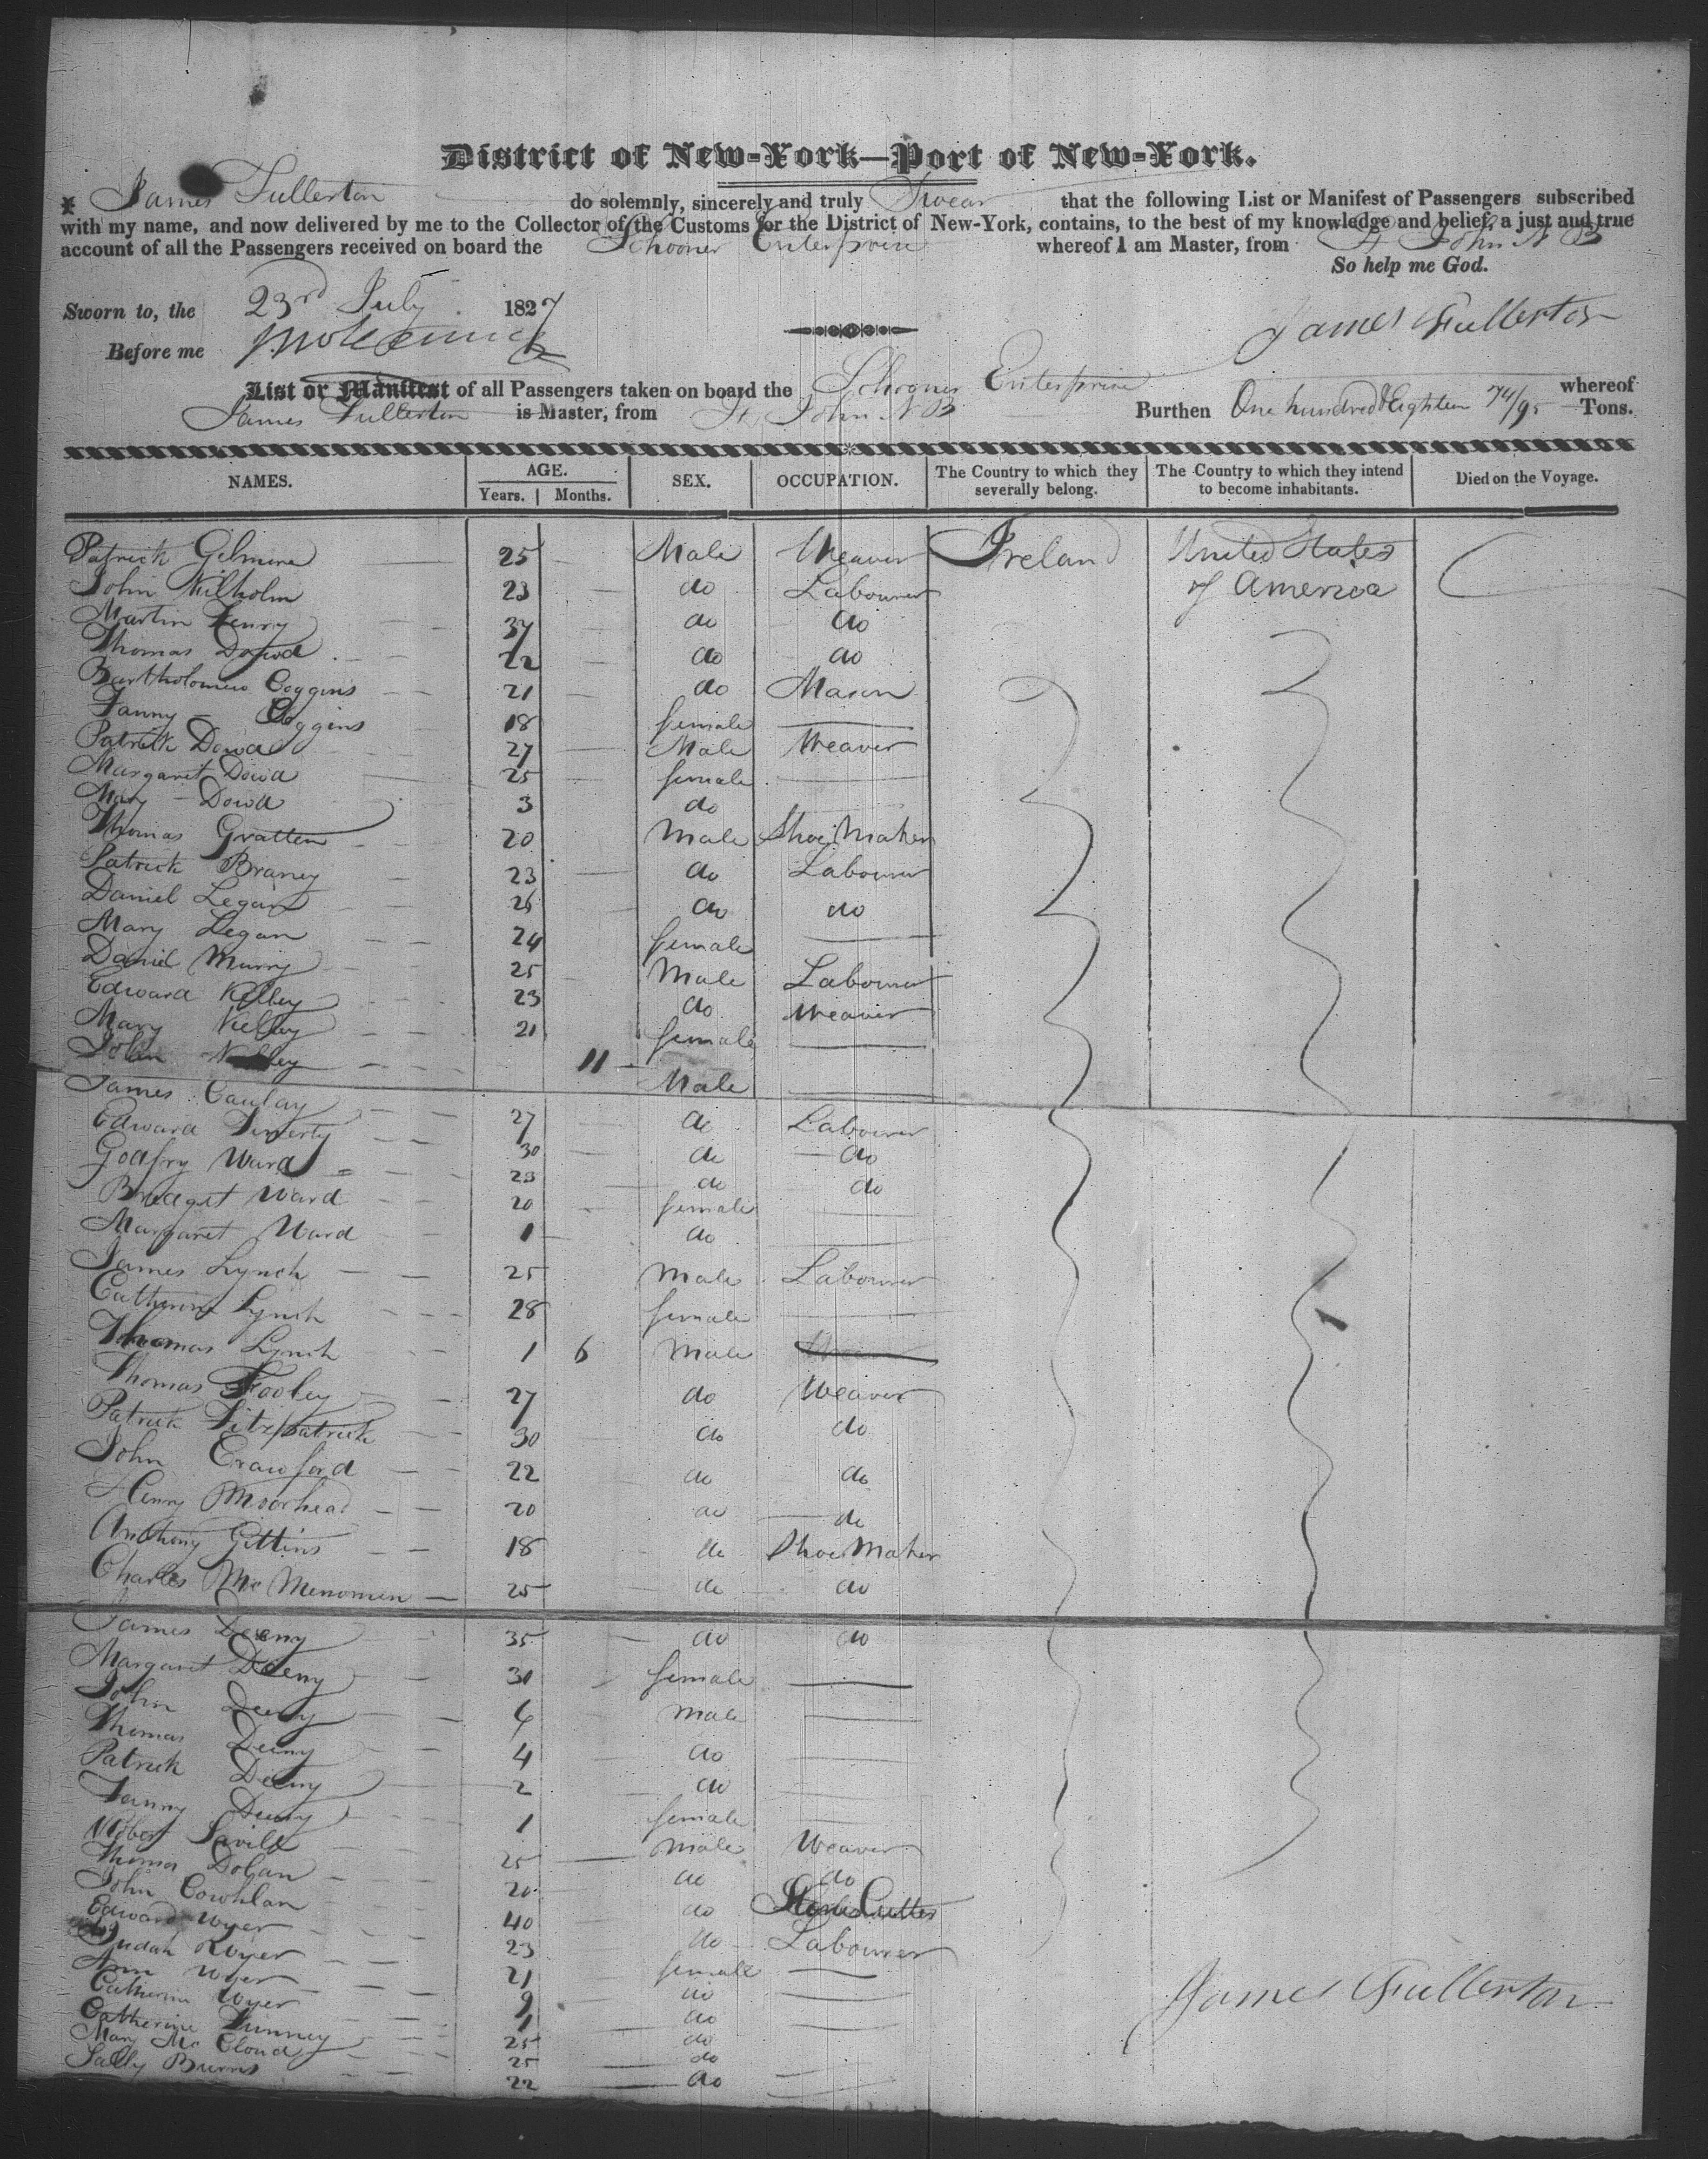 District of New-York—Port of New-York.
I James Fullerton do solemnly, sincerely and truly Swear that the following List or Manifest of Passengers subscribed
with my name, and now delivered by me to the Collector of the Customs for the District of New-York, contains, to the best of my knowledge and belief, a just and true
account of all the Passengers received on board the Schooner Enterprise whereof I am Master, from St John N B
So help me God.
Sworn to, the 23rd July 1827
James Fullerton
Before me
List or Manifest of all Passengers taken on board the Schooner Enterprise whereof
James Fullerton is Master, from St John N B Burthen One hundred & Eighteen 74/95 Tons.
NAMES. AGE. Years. Months. SEX. OCCUPATION. The Country to which they severally belong. The Country to which they intend to become inhabitants. Died on the Voyage.
Patrick Gilmore 25 Male Weaver Ireland United States
John 23 do Labourer of America
Martin Henry 37 do do
Thomas Dowd 22 do do
Bartholomew Coggins 21 do Mason
Fanny Coggins 18 female
Patrick Dowd 27 Male Weaver
Margaret Dowd 25 female
Mary Dowd 3 do
Thomas Gratten 20 Male Shoe Maker
Patrick Braney 23 do Labourer
Daniel Legan 26 do do
Mary Legan 24 female
Daniel Murry 25 Male Labourer
Edward Kelley 23 do Weaver
Mary Kelley 21 female
John Kelley 11 Male
James Caulay 27 do Labourer
Edward 30 do do
Godfry Ward 23 do do
Bridget Ward 20 female
Margaret Ward 1 do
James Lynch 25 Male Labourer
Catherine Lynch 28 female
Thomas Lynch 1 6 Male
Thomas Fooley 27 do Weaver
Patrick Fitzpatrick 30 do do
John Crawford 22 do do
Henry Moorhead 20 do do
Anthony Gittins 18 do Shoe Maker
Charles Mc Menomen 25 do do
James Deeny 35 do do
Margaret Deeny 30 female
John Deeny 6 Male
Thomas Deeny 4 do
Patrick Deeny 2 do
Fanny Deeny 1 female
Robert Savill 25 Male Weaver
Thomas Dolan 20 do do
John Cowhlan 40 do Stone Cutter
Edward Wyer 23 do Labourer
Judah Wyer 21 female
Ann Wyer 9 do
Catherine Wyer 1 do
Catherine Finney 25 do
Mary Mc Cloud 25 do
Sally Burns 22 do
James Fullerton